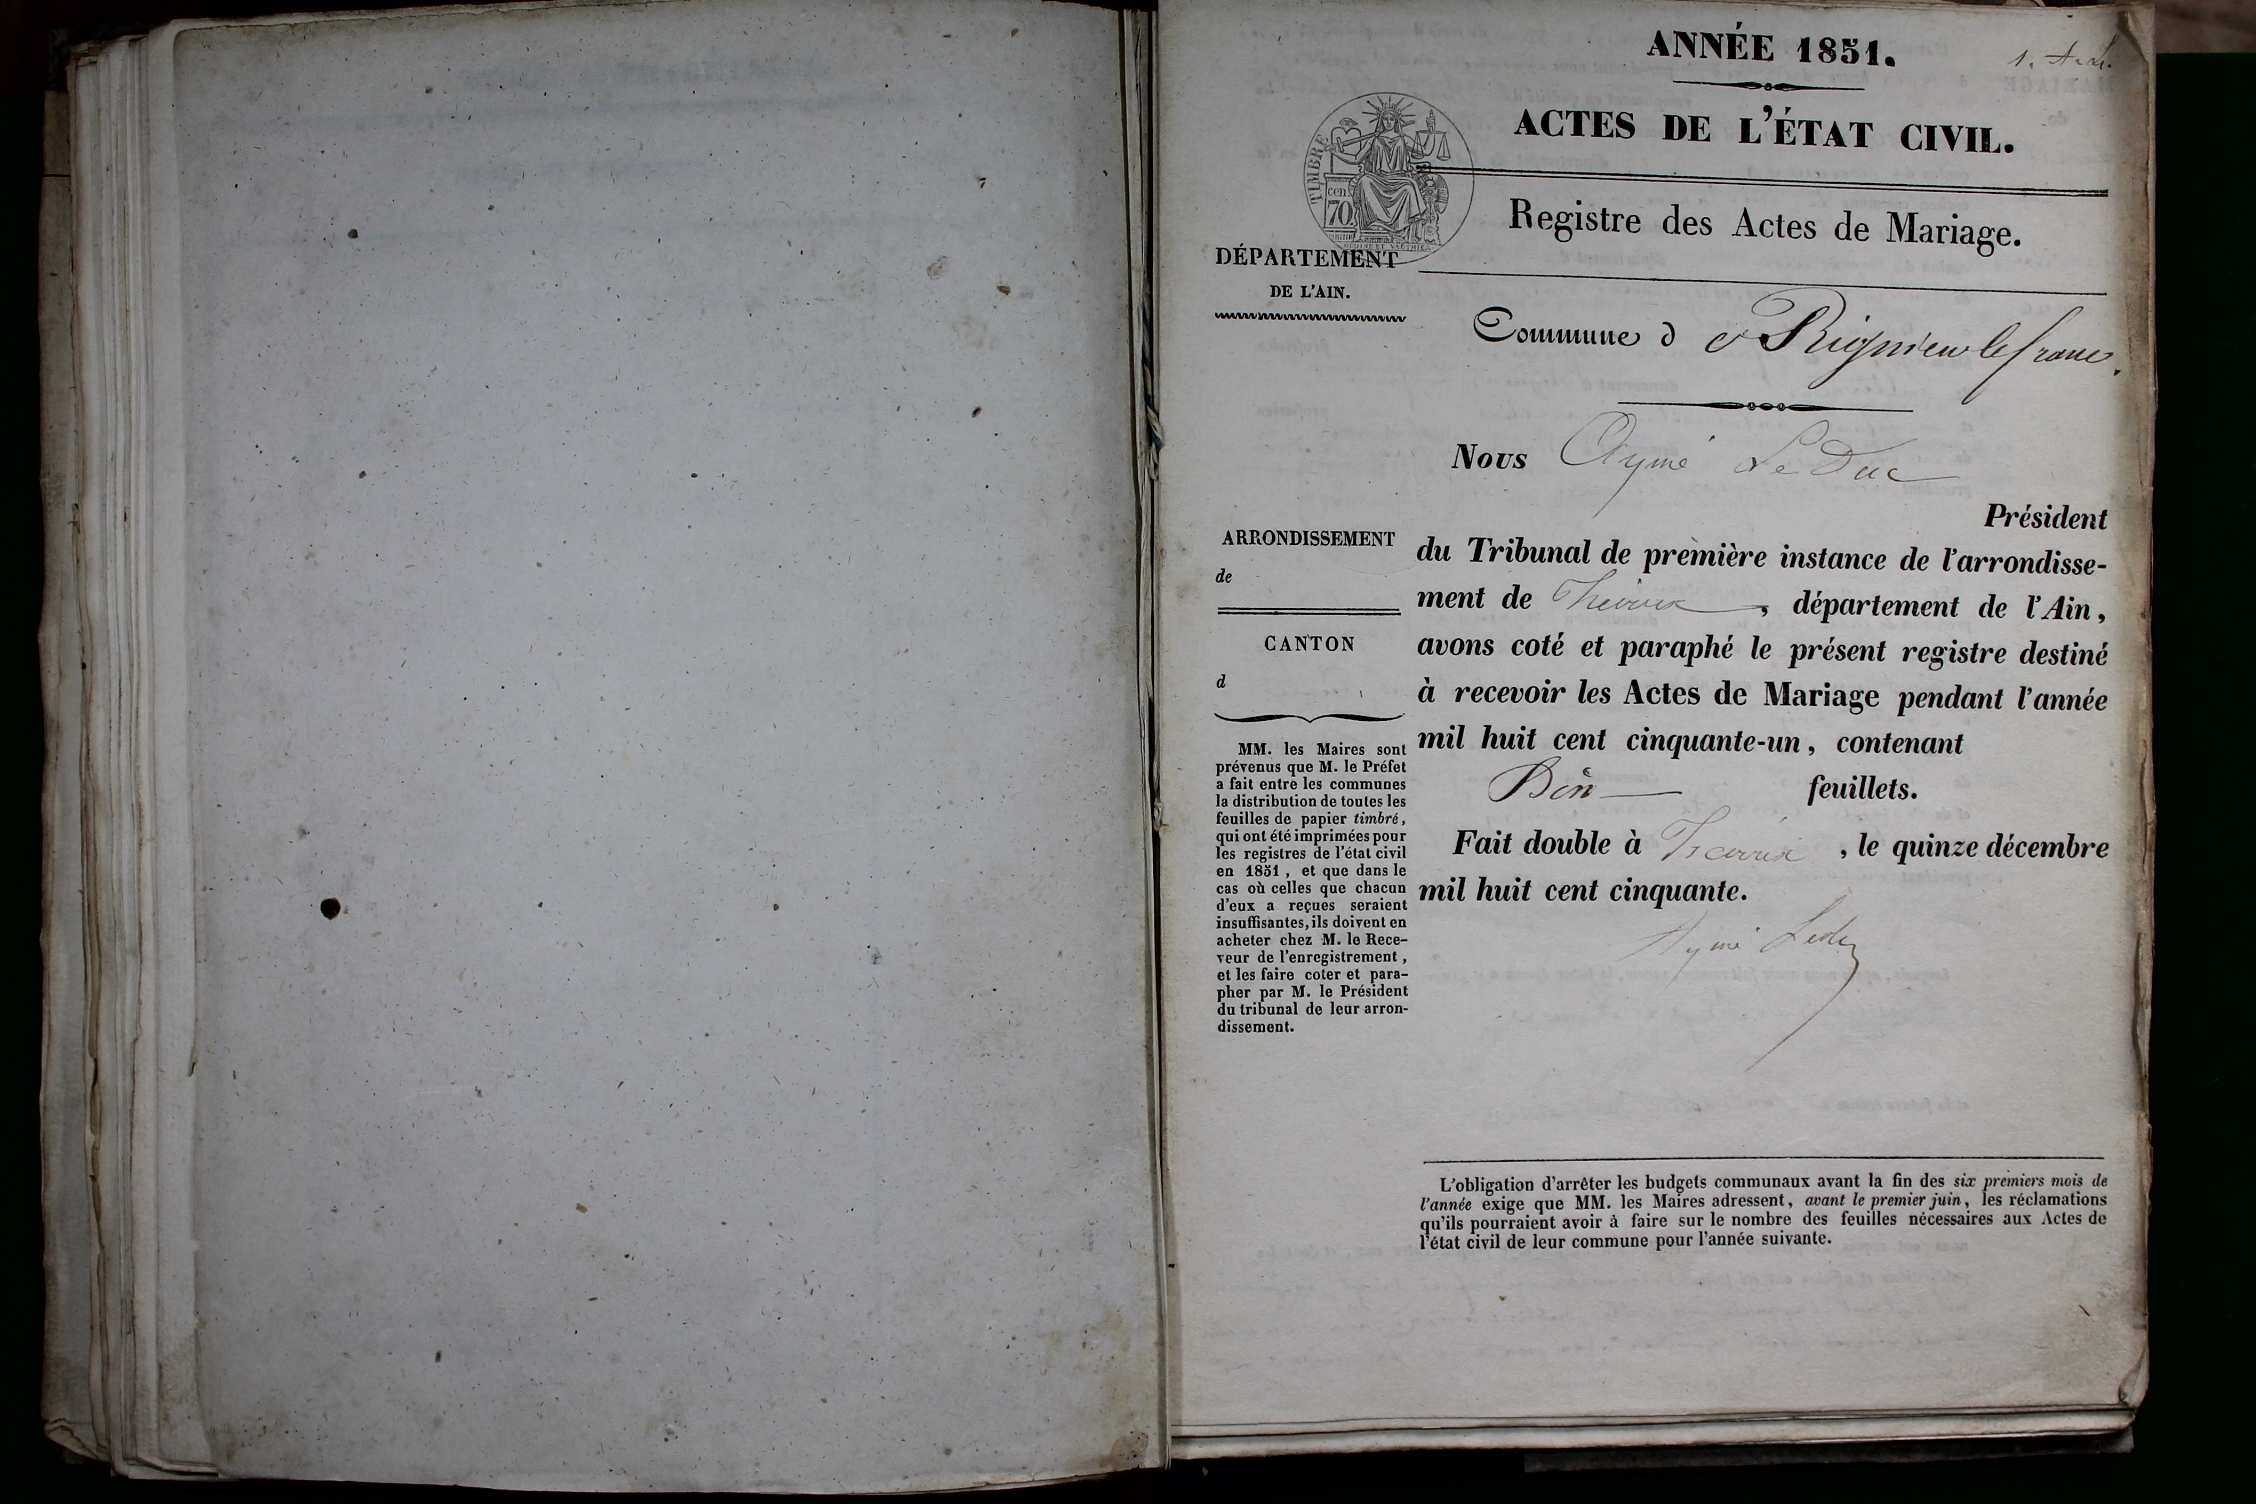 ANNÉE 1851.
1.
ACTES DE L'ÉTAT CIVIL.
TIMBRE
cen
70
Registre des Actes de Mariage.
DÉPARTEMENT
DE L'AIN.
Commune de Rignieu le franc.
Nous Aymé Le Duc
Président
du Tribunal de première instance de l'arrondisse-
ment de Trévoux, département de l'Ain,
avons coté et paraphé le présent registre destiné
à recevoir les Actes de Mariage pendant l'année
mil huit cent cinquante-un, contenant
feuillets.
Fait double à Trévoux, le quinze décembre
mil huit cent cinquante.
Aymé Leduc
ARRONDISSEMENT
de
CANTON
d
MM. les Maires sont
prévenus que M. le Préfet
a fait entre les communes
la distribution de toutes les
feuilles de papier timbré,
qui ont été imprimées pour
les registres de l'état civil
en 1851, et que dans le
cas où celles que chacun
d'eux a reçues seraient
insuffisantes, ils doivent en
acheter chez M. le Rece-
veur de l'enregistrement,
et les faire coter et para-
pher par M. le Président
du tribunal de leur arron-
dissement.
L'obligation d'arrêter les budgets communaux avant la fin des six premiers mois de
l'année exige que MM. les Maires adressent, avant le premier juin, les réclamations
qu'ils pourraient avoir à faire sur le nombre des feuilles nécessaires aux Actes de
l'état civil de leur commune pour l'année suivante.